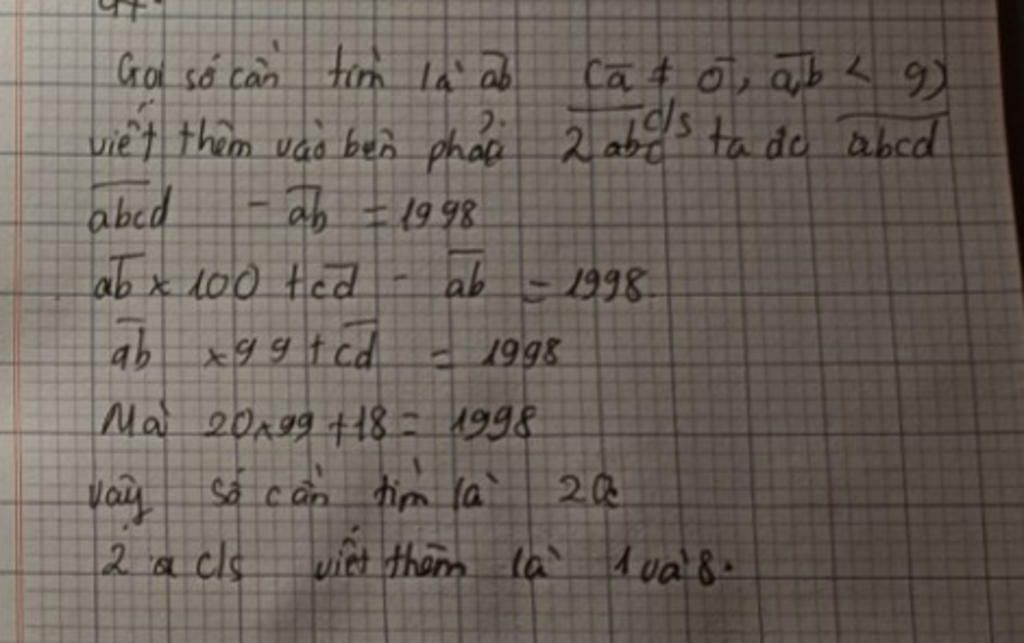 Gọi số cần tìm là ab (a ≠ 0, a,b < 9)
viết thêm vào bên phải 2 c/s ta dc abcd
abcd - ab = 1998
ab x 100 + cd - ab = 1998
ab x 99 + cd = 1998
Mà 20 x 99 + 18 = 1998
vậy số cần tìm là 20
2 c/s viết thêm là 1 và 8.